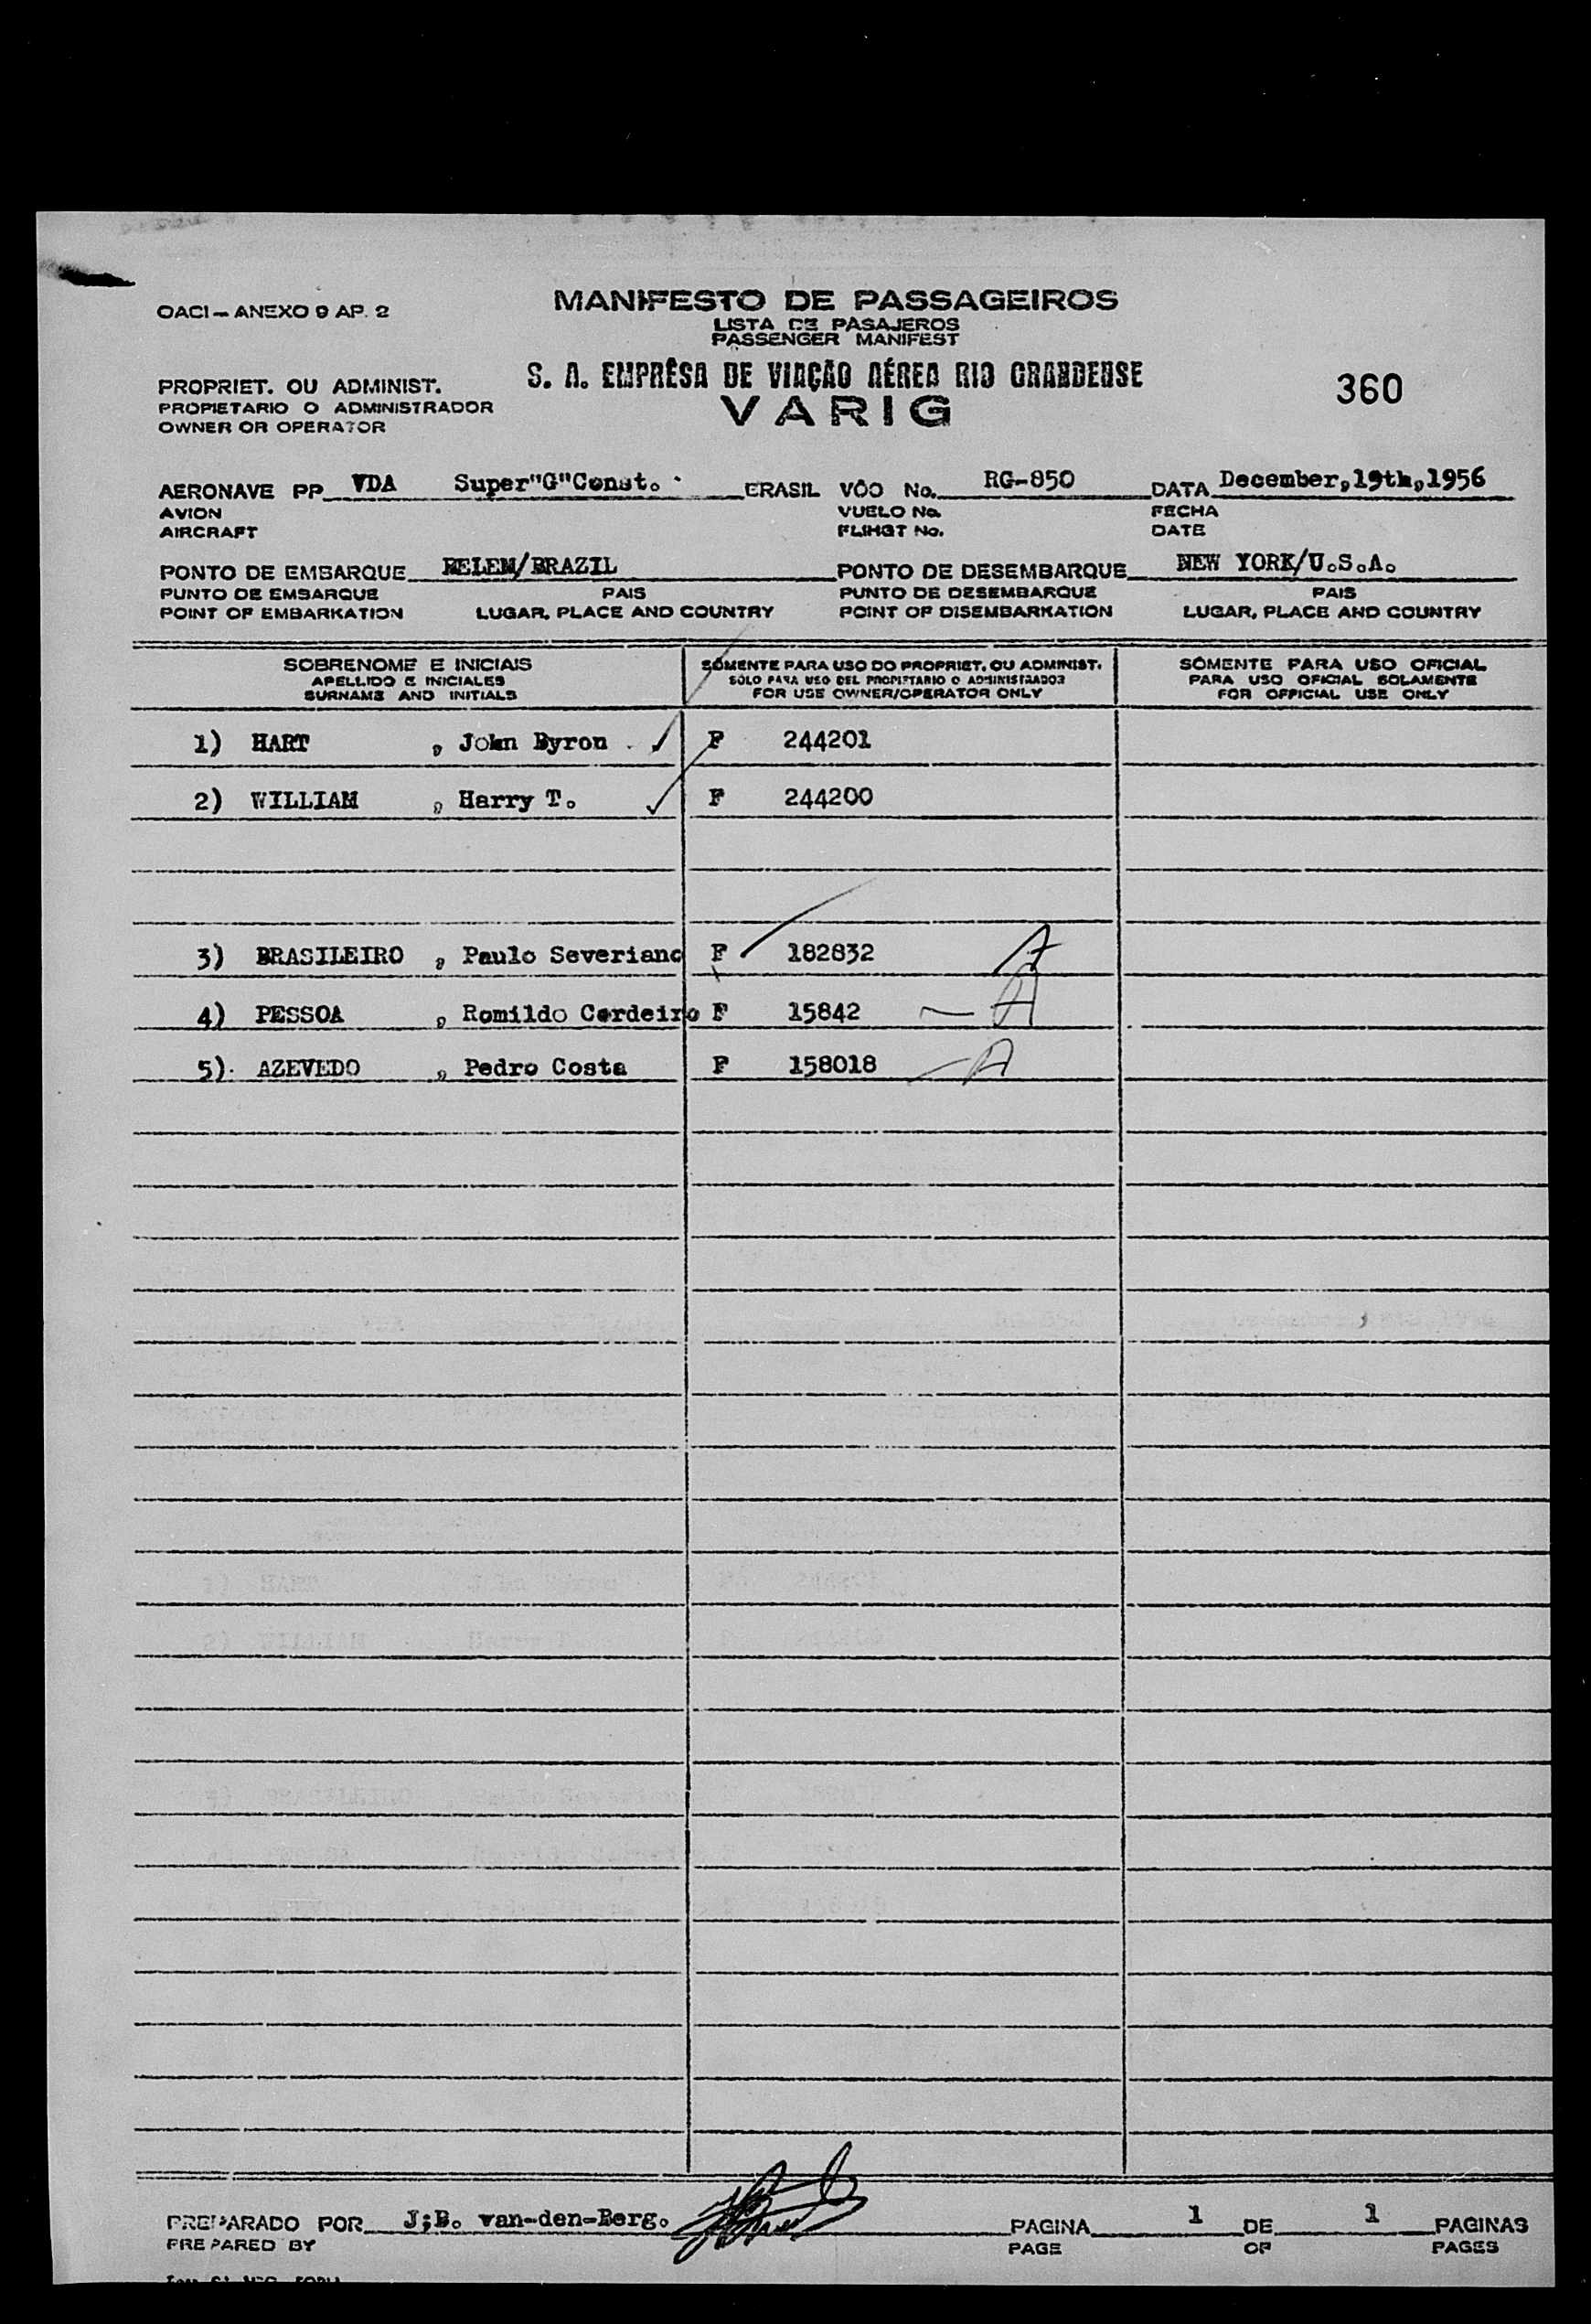 OACI — ANEXO 9 AP. 2
MANIFESTO DE PASSAGEIROS
LISTA DE PASAJEROS
PASSENGER MANIFEST
S. A. EMPRÊSA DE VIAÇÃO AÉREA RIO GRANDENSE
VARIG
360
PROPRIET. OU ADMINIST.
PROPIETARIO O ADMINISTRADOR
OWNER OR OPERATOR
AERONAVE PP VDA Super"G"Const. BRASIL VÔO No. RG-850 DATA December,19th,1956
AVION VUELO No. FECHA
AIRCRAFT FLIHGT No. DATE
PONTO DE EMBARQUE BELEM/BRAZIL PONTO DE DESEMBARQUE NEW YORK/U.S.A.
PUNTO DE EMBARQUE PAIS PUNTO DE DESEMBARQUE PAIS
POINT OF EMBARKATION LUGAR, PLACE AND COUNTRY POINT OF DISEMBARKATION LUGAR, PLACE AND COUNTRY
SOBRENOME E INICIAIS SÓMENTE PARA USO DO PROPRIET. OU ADMINIST. SÓMENTE PARA USO OFICIAL
APELLIDO E INICIALES SÓLO PARA USO DEL PROPIETARIO O ADMINISTRADOR PARA USO OFICIAL SOLAMENTE
SURNAME AND INITIALS FOR USE OWNER/OPERATOR ONLY FOR OFFICIAL USE ONLY
1) HART , John Byron . ✓ F 244201
2) WILLIAM , Harry T. ✓ F 244200
3) BRASILEIRO , Paulo Severiano F 182832 A
4) PESSOA , Romildo Cordeiro F 15842 — A
5). AZEVEDO , Pedro Costa F 158018 — A
PREPARADO POR J;B. van-den-Berg. PAGINA 1 DE 1 PAGINAS
PREPARED BY PAGE OF PAGES